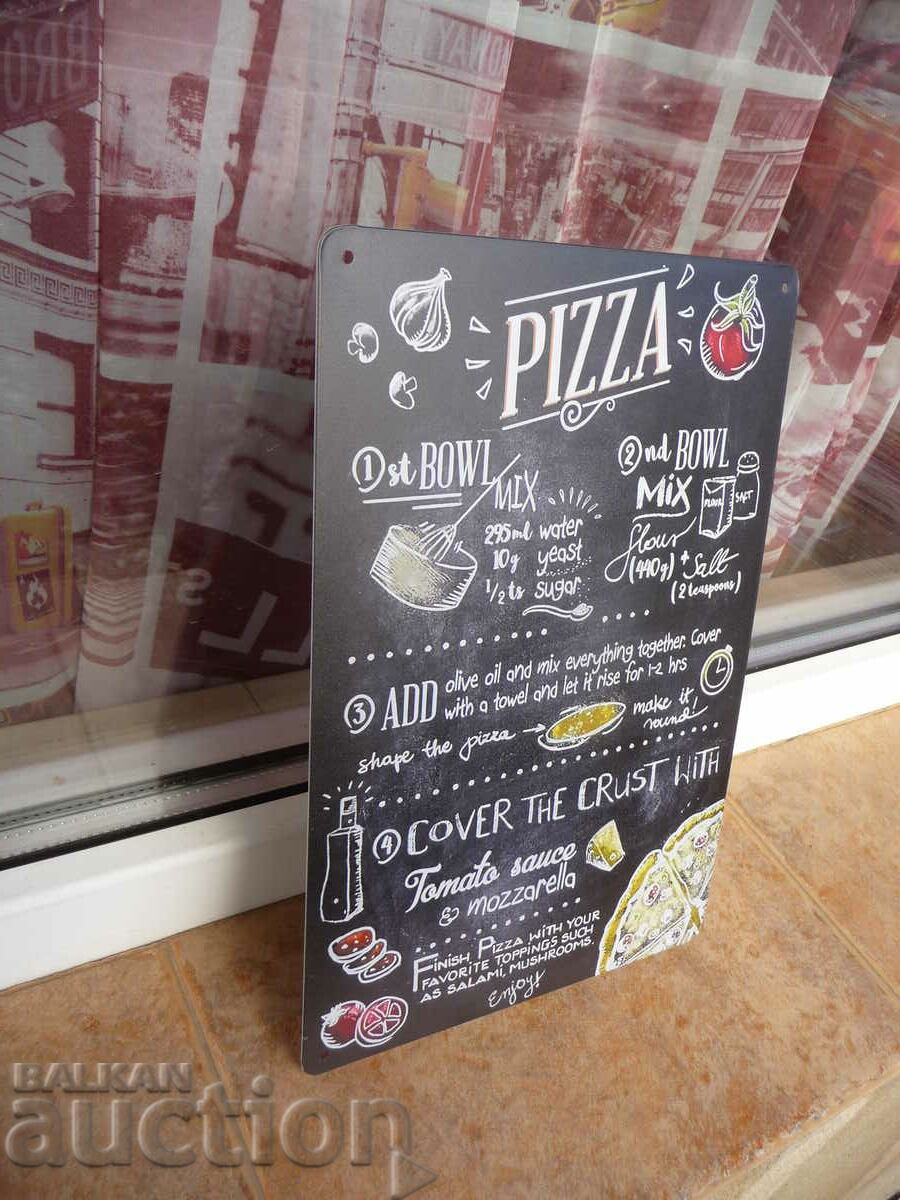 PIZZA
1st BOWL
MIX
295ml water
10g yeast
1/2 ts sugar
2nd BOWL
MIX
FLOUR
SALT
flour
(440g) + Salt
(2 teaspoons)
3 ADD olive oil and mix everything together. Cover
with a towel and let it rise for 1-2 hrs
shape the pizza → make it
round!
4 COVER THE CRUST WITH
Tomato sauce
& mozzarella
FINISH PIZZA WITH YOUR
FAVORITE TOPPINGS SUCH
AS SALAMI, MUSHROOMS.
Enjoy!
BALKAN
auction